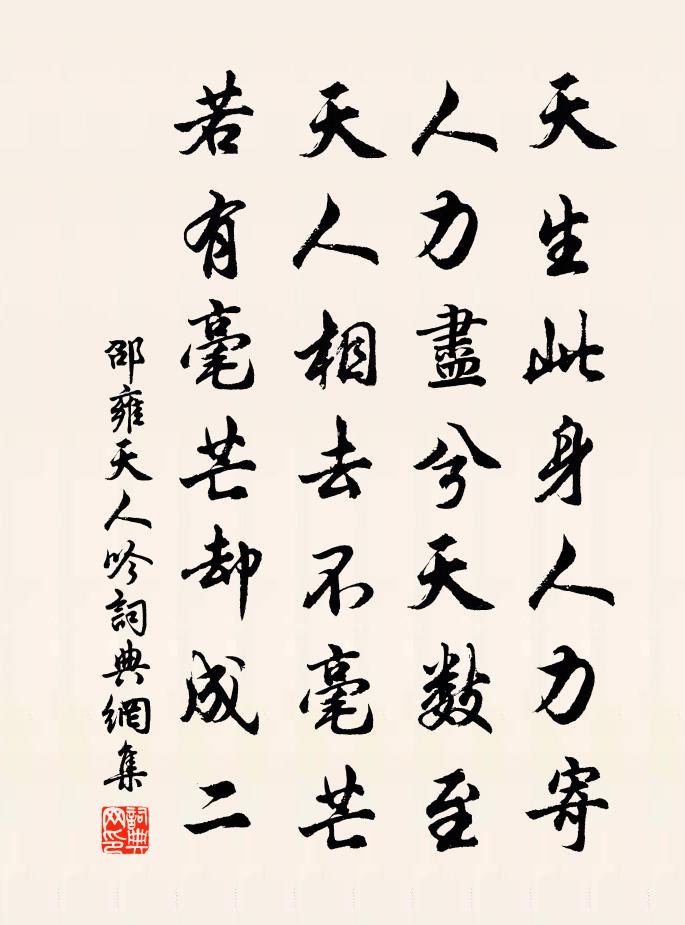 天生此身人力寄
人力盡兮天數至
天人相去不毫芒
若有毫芒却成二
邵雍天人吟詞典網集
詞典網印